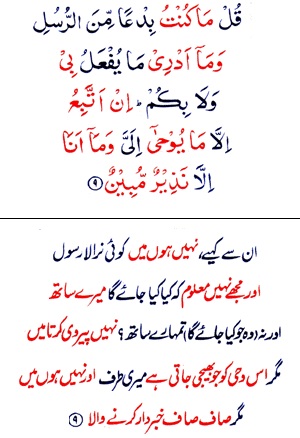 قُلْ مَا كُنْتُ بِدْعًا مِّنَ الرُّسُلِ
وَمَآ اَدْرِىْ مَا يُفْعَلُ بِىْ
وَلَا بِكُمْ ؕ اِنْ اَتَّبِعُ
اِلَّا مَا يُوْحٰٓى اِلَىَّ وَمَآ اَنَا
اِلَّا نَذِيْرٌ مُّبِيْنٌ ۹
ان سے کہیے، نہیں ہوں میں کوئی نرالا رسول
اور مجھے نہیں معلوم کہ کیا کیا جائے گا میرے ساتھ
اور نہ (وہ جو کیا جائے گا) تمہارے ساتھ؟ نہیں پیروی کرتا میں
مگر اس وحی کو جو بھیجی جاتی ہے میری طرف اور نہیں ہوں میں
مگر صاف صاف خبردار کرنے والا ۹